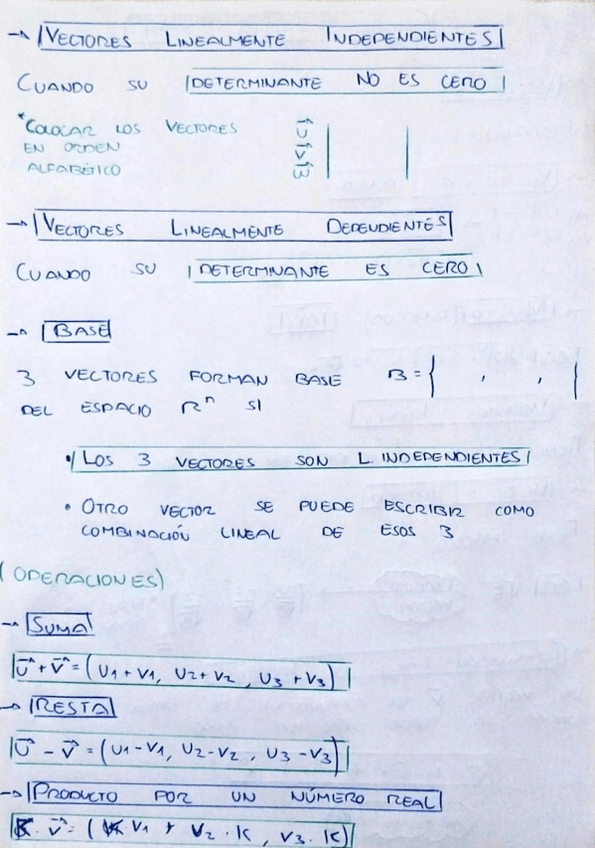 → VECTORES LINEALMENTE INDEPENDIENTES
CUANDO SU DETERMINANTE NO ES CERO
*COLOCAR LOS VECTORES
EN ORDEN
ALFABÉTICO
u⃗
v⃗
w⃗
→ VECTORES LINEALMENTE DEPENDIENTES
CUANDO SU DETERMINANTE ES CERO
→ BASE
3 VECTORES FORMAN BASE B = { , , }
DEL ESPACIO Rⁿ SI
• LOS 3 VECTORES SON L. INDEPENDIENTES
• OTRO VECTOR SE PUEDE ESCRIBIR COMO
COMBINACIÓN LINEAL DE ESOS 3
(OPERACIONES)
→ SUMA
u⃗ + v⃗ = (u1 + v1, u2 + v2, u3 + v3)
→ RESTA
u⃗ - v⃗ = (u1 - v1, u2 - v2, u3 - v3)
→ PRODUCTO POR UN NÚMERO REAL
K · v⃗ = (K v1 , v2 · K, v3 · K)